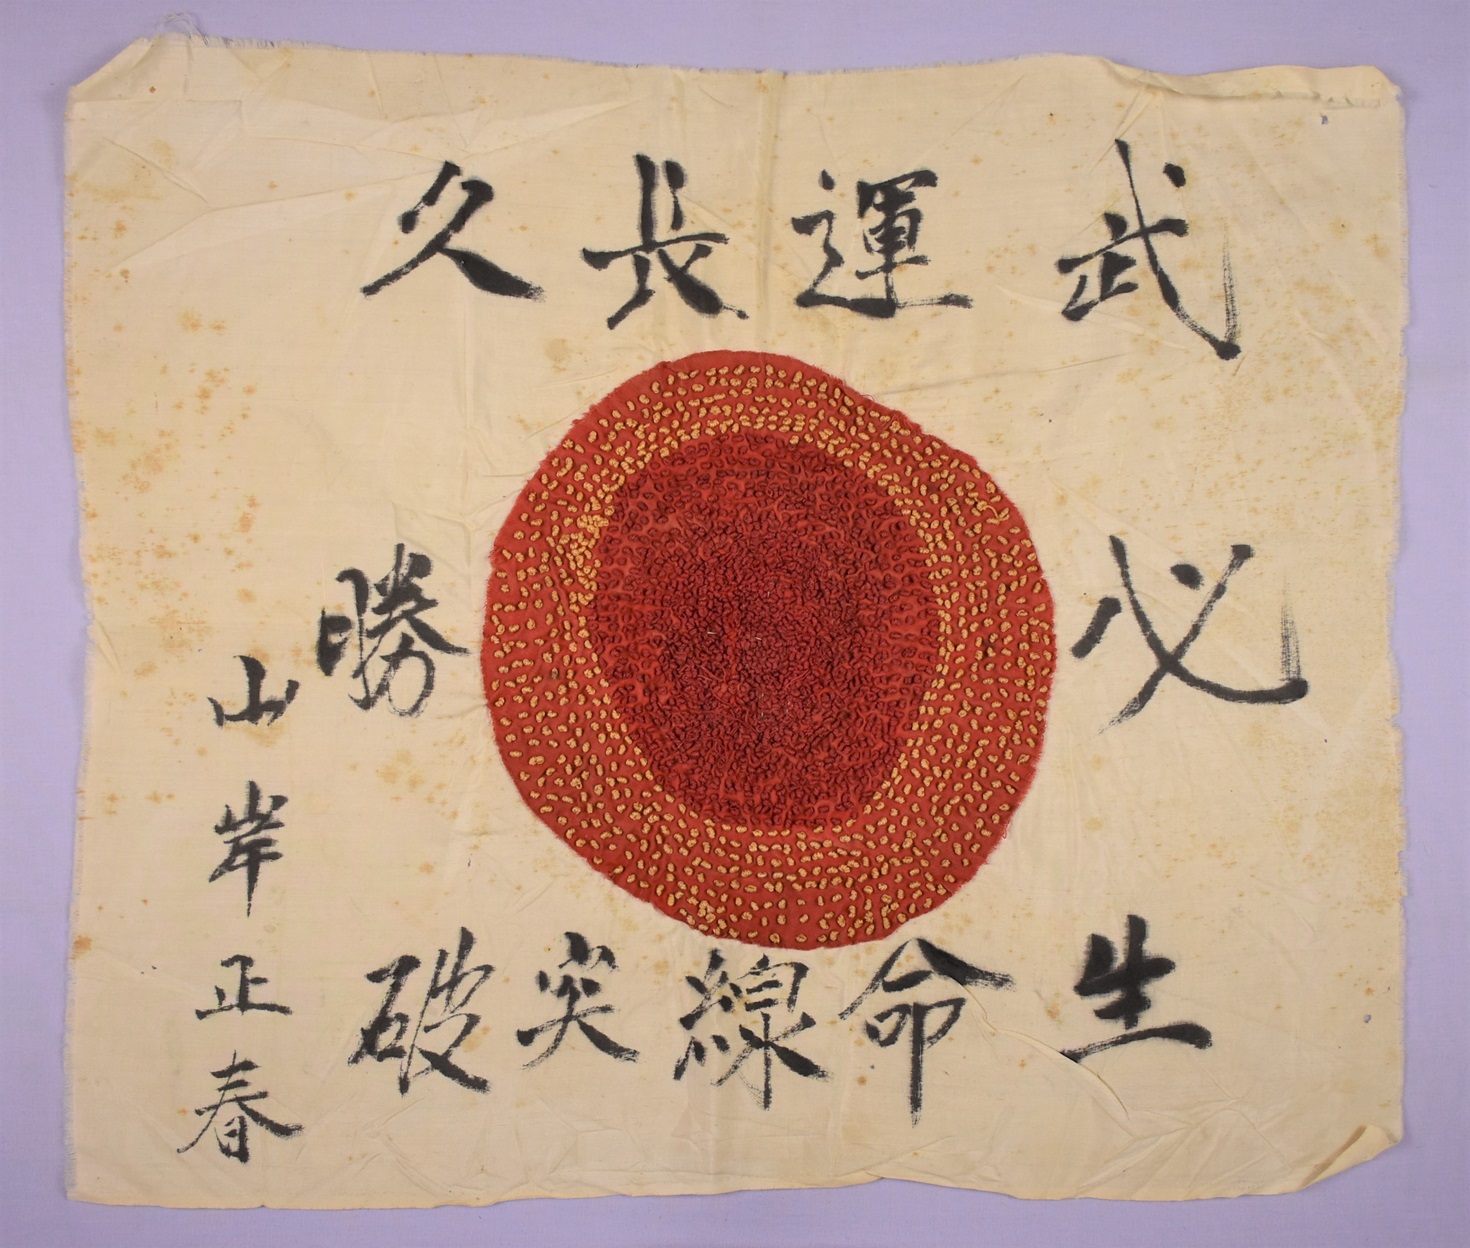 武運長久
必勝
生命線突破
山岸正春